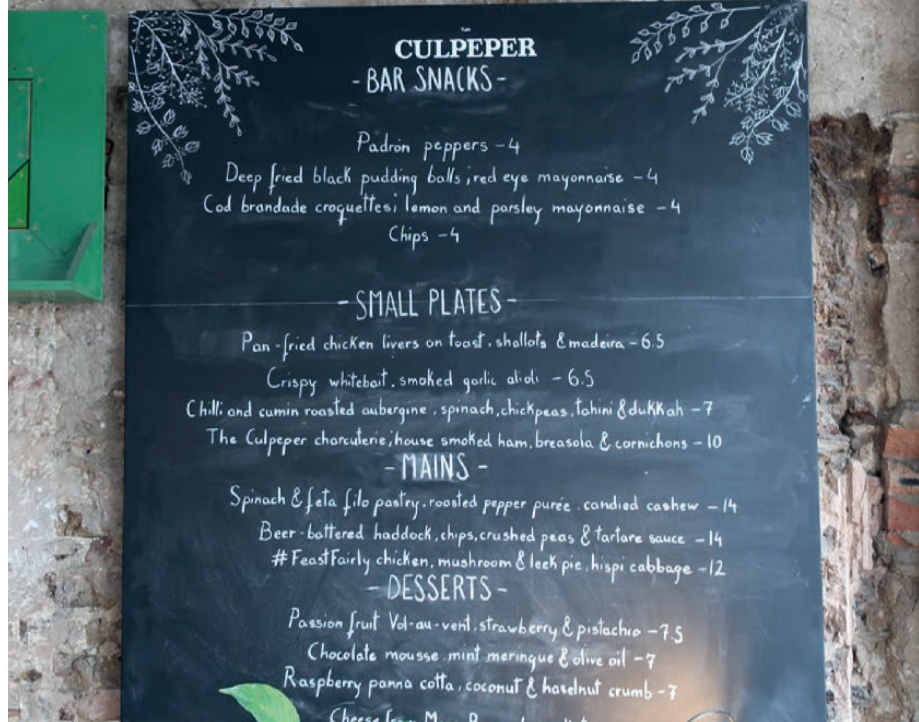 The
CULPEPER
- BAR SNACKS -
Padrón peppers - 4
Deep fried black pudding balls ; red eye mayonnaise - 4
Cod brandade croquettes; lemon and parsley mayonnaise - 4
Chips - 4
- SMALL PLATES -
Pan-fried chicken livers on toast, shallots & madeira - 6.5
Crispy whitebait, smoked garlic alioli - 6.5
Chilli and cumin roasted aubergine, spinach, chickpeas, tahini & dukkah - 7
The Culpeper charcuterie; house smoked ham, breasola & cornichons - 10
- MAINS -
Spinach & feta filo pastry, roasted pepper purée, candied cashew - 14
Beer-battered haddock, chips, crushed peas & tartare sauce - 14
#FeastFairly chicken, mushroom & leek pie, hispi cabbage - 12
- DESSERTS -
Passion fruit Vol-au-vent, strawberry & pistachio - 7.5
Chocolate mousse, mint meringue & olive oil - 7
Raspberry panna cotta, coconut & haselnut crumb - 7
Cheese from